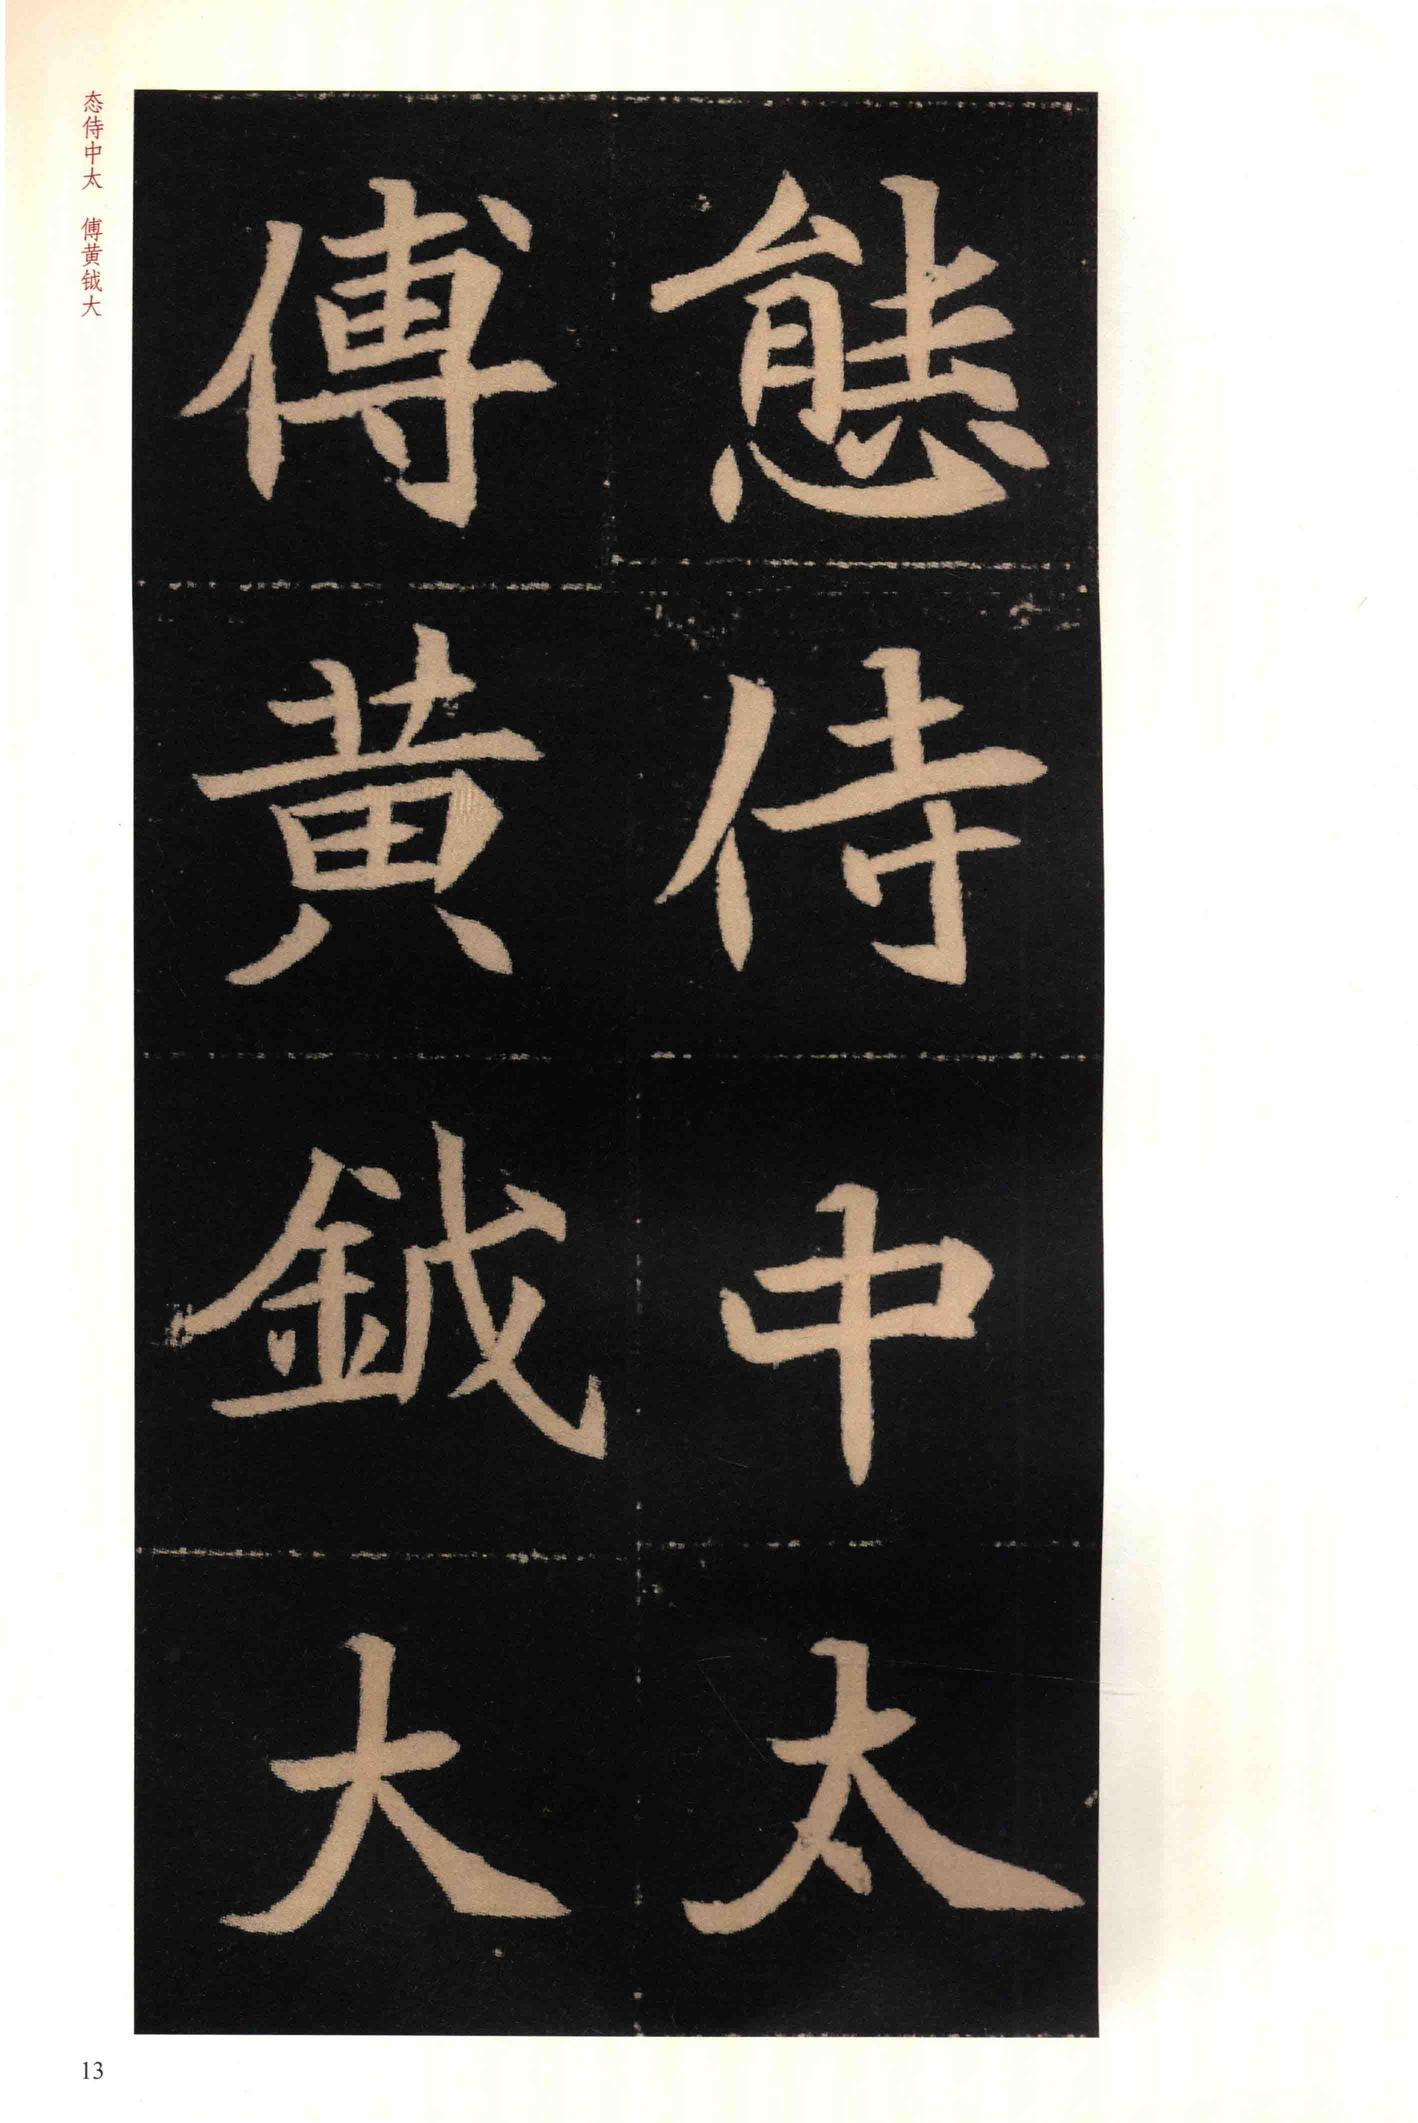 態侍中太
傅黄鉞大
态侍中太　傅黄钺大
13